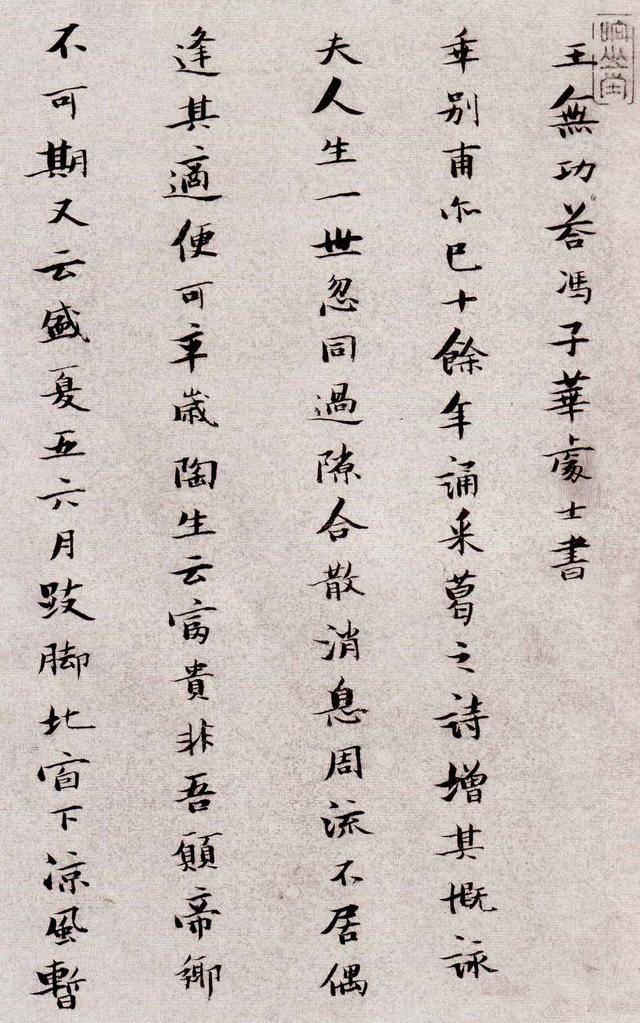 王無功荅馮子華處士書
乖别甫尔已十餘年誦采葛之詩增其慨詠
夫人生一世忽同過隙合散消息周流不居偶
逢其適便可卒歲陶生云富貴非吾願帝鄉
不可期又云盛夏五六月跂脚北窗下涼風暫